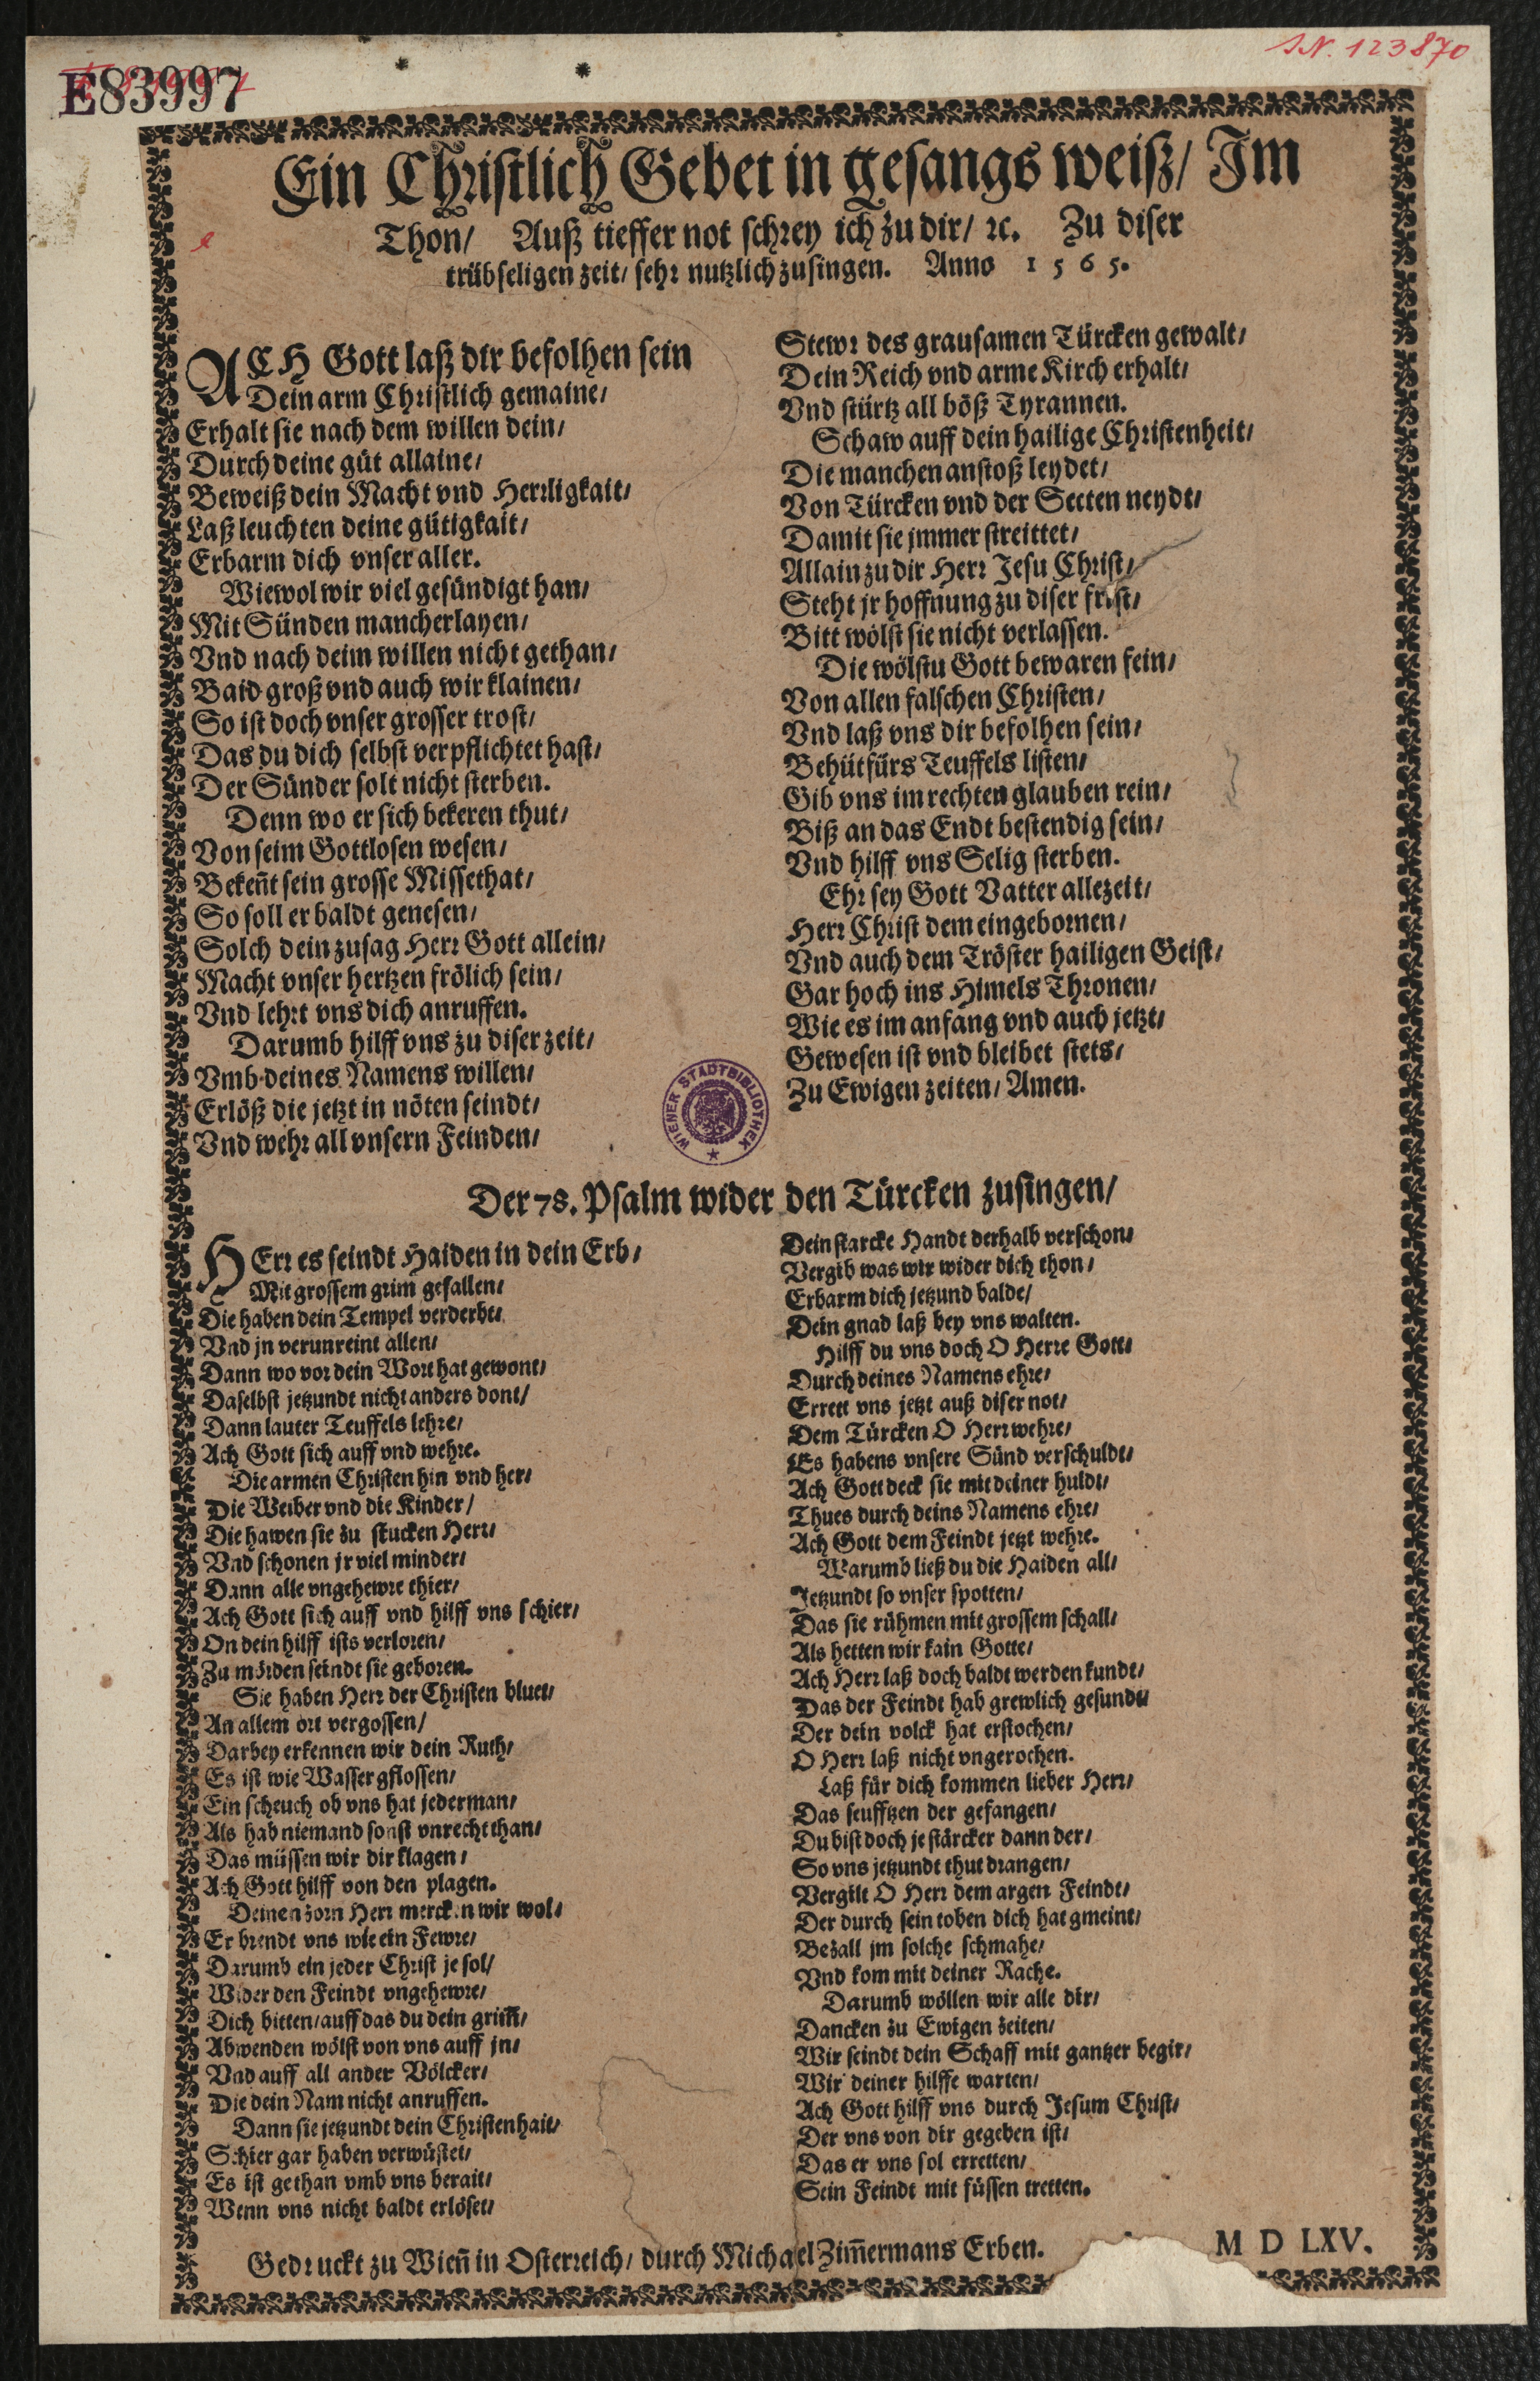 E83997
I.N. 123870
Ein Christlich Gebet in gesangs weiß/ Im
Thon/ Auß tieffer not schrey ich zu dir/ ꝛc. Zu diser
trübseligen zeit/ sehr nutzlich zusingen. Anno 1565.
ACH Gott laß dir befolhen sein
Dein arm Christlich gemaine/
Erhalt sie nach dem willen dein/
Durch deine güt allaine/
Beweiß dein Macht vnd Herrligkait/
Laß leuchten deine gütigkait/
Erbarm dich vnser aller.
Wiewol wir viel gesündigt han/
Mit Sünden mancherlayen/
Vnd nach deim willen nicht gethan/
Baid groß vnd auch wir klainen/
So ist doch vnser grosser trost/
Das du dich selbst verpflichtet hast/
Der Sünder solt nicht sterben.
Denn wo er sich bekeren thut/
Von seim Gottlosen wesen/
Bekeñt sein grosse Missethat/
So soll er baldt genesen/
Solch dein zusag Herr Gott allein/
Macht vnser hertzen frölich sein/
Vnd lehrt vns dich anruffen.
Darumb hilff vns zu diser zeit/
Vmb deines Namens willen/
Erlöß die jetzt in nöten seindt/
Vnd wehr all vnsern Feinden/
Stewr des grausamen Türcken gewalt/
Dein Reich vnd arme Kirch erhalt/
Vnd stürtz all böß Tyrannen.
Schaw auff dein hailige Christenheit/
Die manchen anstoß leydet/
Von Türcken vnd der Secten neydt/
Damit sie jmmer streittet/
Allain zu dir Herr Jesu Christ/
Steht jr hoffnung zu diser frist/
Bitt wölst sie nicht verlassen.
Die wölstu Gott bewaren fein/
Von allen falschen Christen/
Vnd laß vns dir befolhen sein/
Behüt fürs Teuffels listen/
Gib vns im rechten glauben rein/
Biß an das Endt bestendig sein/
Vnd hilff vns Selig sterben.
Ehr sey Gott Vatter allezeit/
Herr Christ dem eingebornen/
Vnd auch dem Tröster hailigen Geist/
Gar hoch ins Himels Thronen/
Wie es im anfang vnd auch jetzt/
Gewesen ist vnd bleibet stets/
Zu Ewigen zeiten/ Amen.
WIENER STADTBIBLIOTHEK
Der 78. Psalm wider den Türcken zusingen/
HErr es seindt Haiden in dein Erb/
Mit grossem grim gefallen/
Die haben dein Tempel verderbt/
Vnd jn verunreint allen/
Dann wo vor dein Wort hat gewont/
Daselbst jetzundt nicht anders dont/
Dann lauter Teuffels lehre/
Ach Gott sich auff vnd wehre.
Die armen Christen hin vnd her/
Die Weiber vnd die Kinder/
Die hawen sie zu stucken Herr/
Vnd schonen jr viel minder/
Dann alle vngehewre thier/
Ach Gott sich auff vnd hilff vns schier/
On dein hilff ists verloren/
Zu mörden seindt sie geboren.
Sie haben Herr der Christen bluet/
An allem ort vergossen/
Darbey erkennen wir dein Ruth/
Es ist wie Wasser gflossen/
Ein scheuch ob vns hat jederman/
Als hab niemand sonst vnrecht than/
Das müssen wir dir klagen/
Ach Gott hilff von den plagen.
Deinen zorn Herr mercken wir wol/
Er brendt vns wie ein Fewre/
Darumb ein jeder Christ je sol/
Wider den Feindt vngehewre/
Dich bitten/ auff das du dein grim̃/
Abwenden wölst von vns auff jn/
Vnd auff all ander Völcker/
Die dein Nam nicht anruffen.
Dann sie jetzundt dein Christenhait/
Schier gar haben verwüstet/
Es ist gethan vmb vns berait/
Wenn vns nicht baldt erlöset/
Dein starcke Handt derhalb verschon/
Vergib was wir wider dich thon/
Erbarm dich jetzund balde/
Dein gnad laß bey vns walten.
Hilff du vns doch O Herre Gott/
Durch deines Namens ehre/
Errett vns jetzt auß diser not/
Dem Türcken O Herr wehre/
Es habens vnsere Sünd verschuldt/
Ach Gott deck sie mit deiner huldt/
Thues durch deins Namens ehre/
Ach Gott dem Feindt jetzt wehre.
Warumb ließ du die Haiden all/
Jetzundt so vnser spotten/
Das sie rühmen mit grossem schall/
Als hetten wir kain Gotte/
Ach Herr laß doch baldt werden kundt/
Das der Feindt hab grewlich gesundt/
Der dein volck hat erstochen/
O Herr laß nicht vngerochen.
Laß für dich kommen lieber Herr/
Das seufftzen der gefangen/
Du bist doch je stärcker dann der/
So vns jetzundt thut drangen/
Vergilt O Herr dem argen Feindt/
Der durch sein toben dich hat gmeint/
Bezall jm solche schmahe/
Vnd kom mit deiner Rache.
Darumb wöllen wir alle dir/
Dancken zu Ewigen zeiten/
Wir seindt dein Schaff mit gantzer begir/
Wir deiner hilffe warten/
Ach Gott hilff vns durch Jesum Christ/
Der vns von dir gegeben ist/
Das er vns sol erretten/
Sein Feindt mit füssen tretten.
Gedruckt zu Wieñ in Osterreich/ durch Michael Zim̃ermans Erben.
M D LXV.